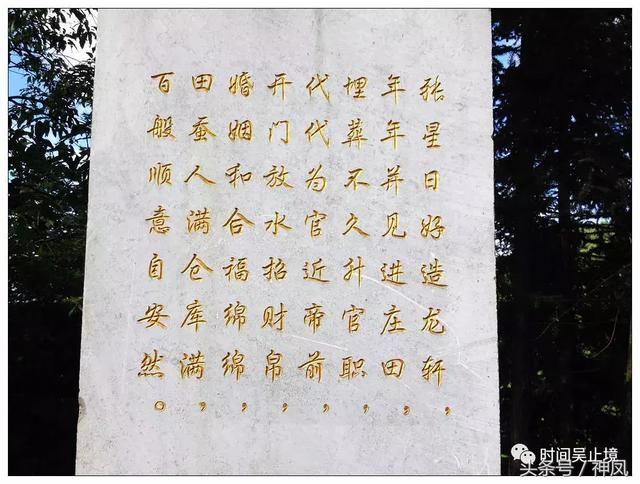 张星日好造龙轩，
年年并见进庄田，
埋葬不久升官职，
代代为官近帝前，
开门放水招财帛，
婚姻和合福绵绵，
田蚕人满仓库满，
百般顺意自安然。
时间吴止境
头条号／神凤